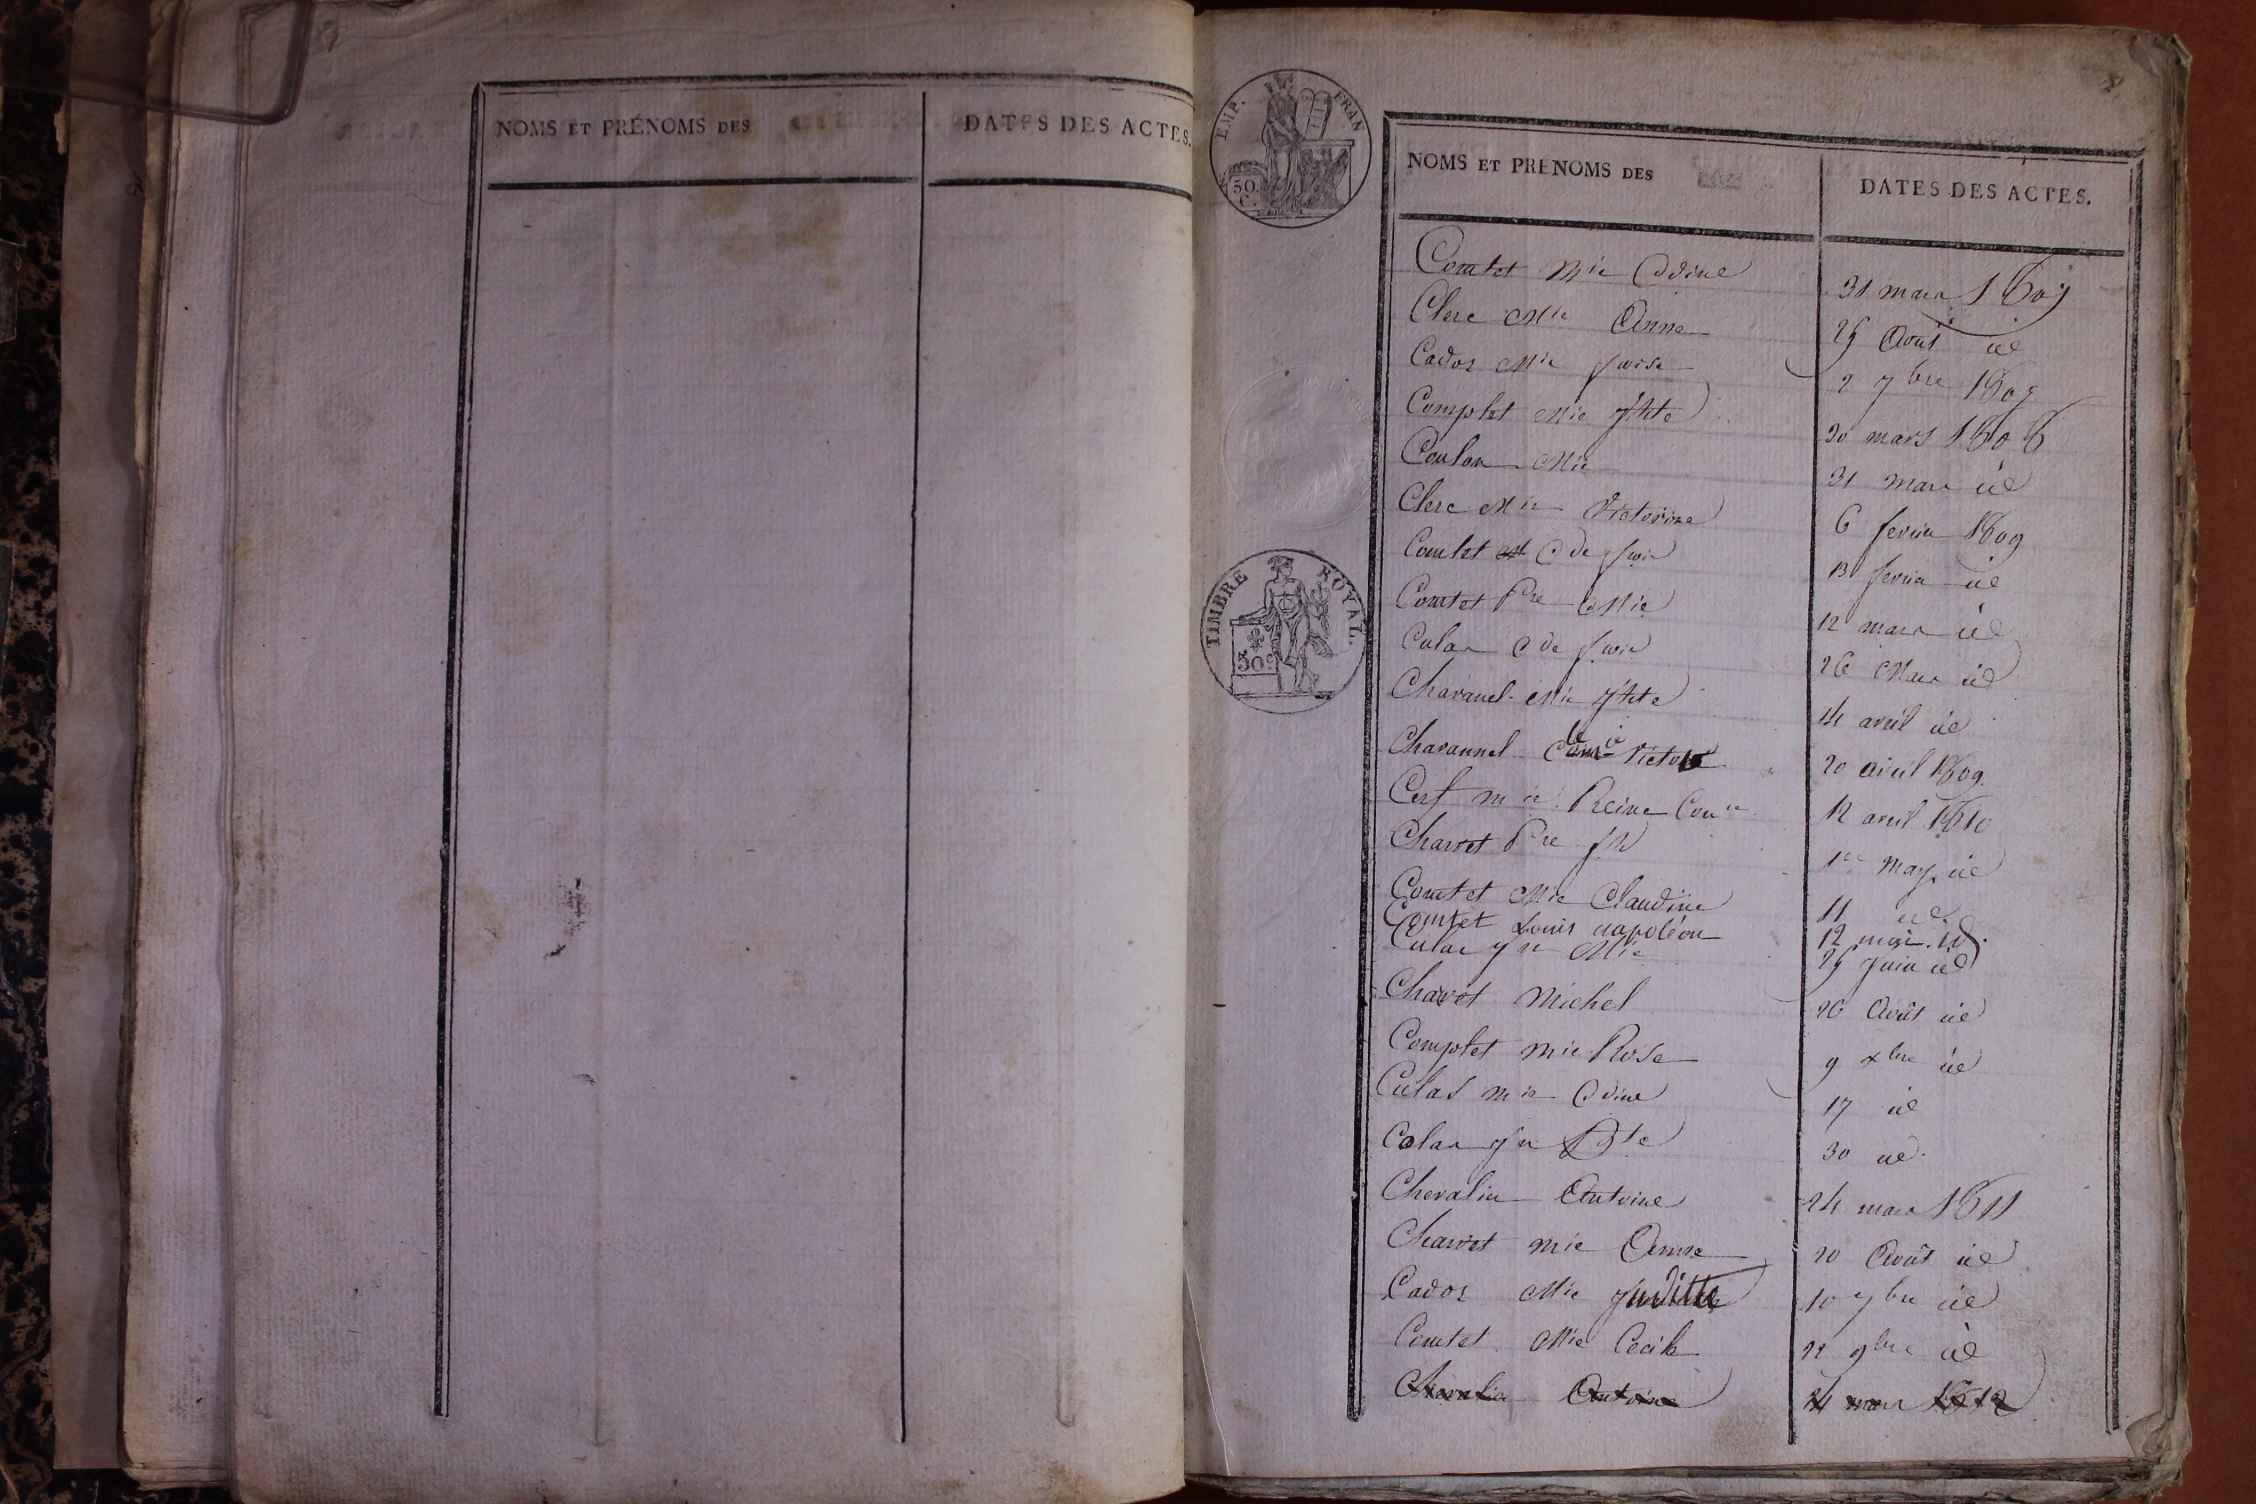 NOMS ET PRÉNOMS DES
DATES DES ACTES.
EMP. FRAN
50.
C.
TIMBRE ROYAL.
50 c
NOMS ET PRENOMS DES
DATES DES ACTES.
Comtet Mie Odine 31 mars 1807
Clerc Mie Anne 25 Août id
Cados Mie foise 2 7bre 1807
Complet Mie 20 mars 1808
Coulon Mie 31 mars id
Clerc Mie Victorine 6 fevrier 1809
Comtet Cde foise 13 fevrier id
Comtet Pre Mie 12 mars id
Culas Cde foise 26 Mars id
Chavanel Mie 14 avril id
Chavannel Victoire 20 avril 1809.
Cerf mie Reine 12 avril 1810
Charvet Pre 1er May id
Comtet Mie Claudine 11 id.
Comtet Louis napoléon 12 mai. id.
Culas Mie 25 Juin id
Charvet Michel 26 Août id
Complet mie Rose 9 xbre id
Culas mie Odine 17 id
Colas 30 id.
Chevalier Antoine 24 mars 1811
Charvet mie Anne 20 Août id
Cados Mie Juditte 10 7bre id
Comtet Mie Cecile 22 9bre id
Chevalier Antoine 24 mars 1812